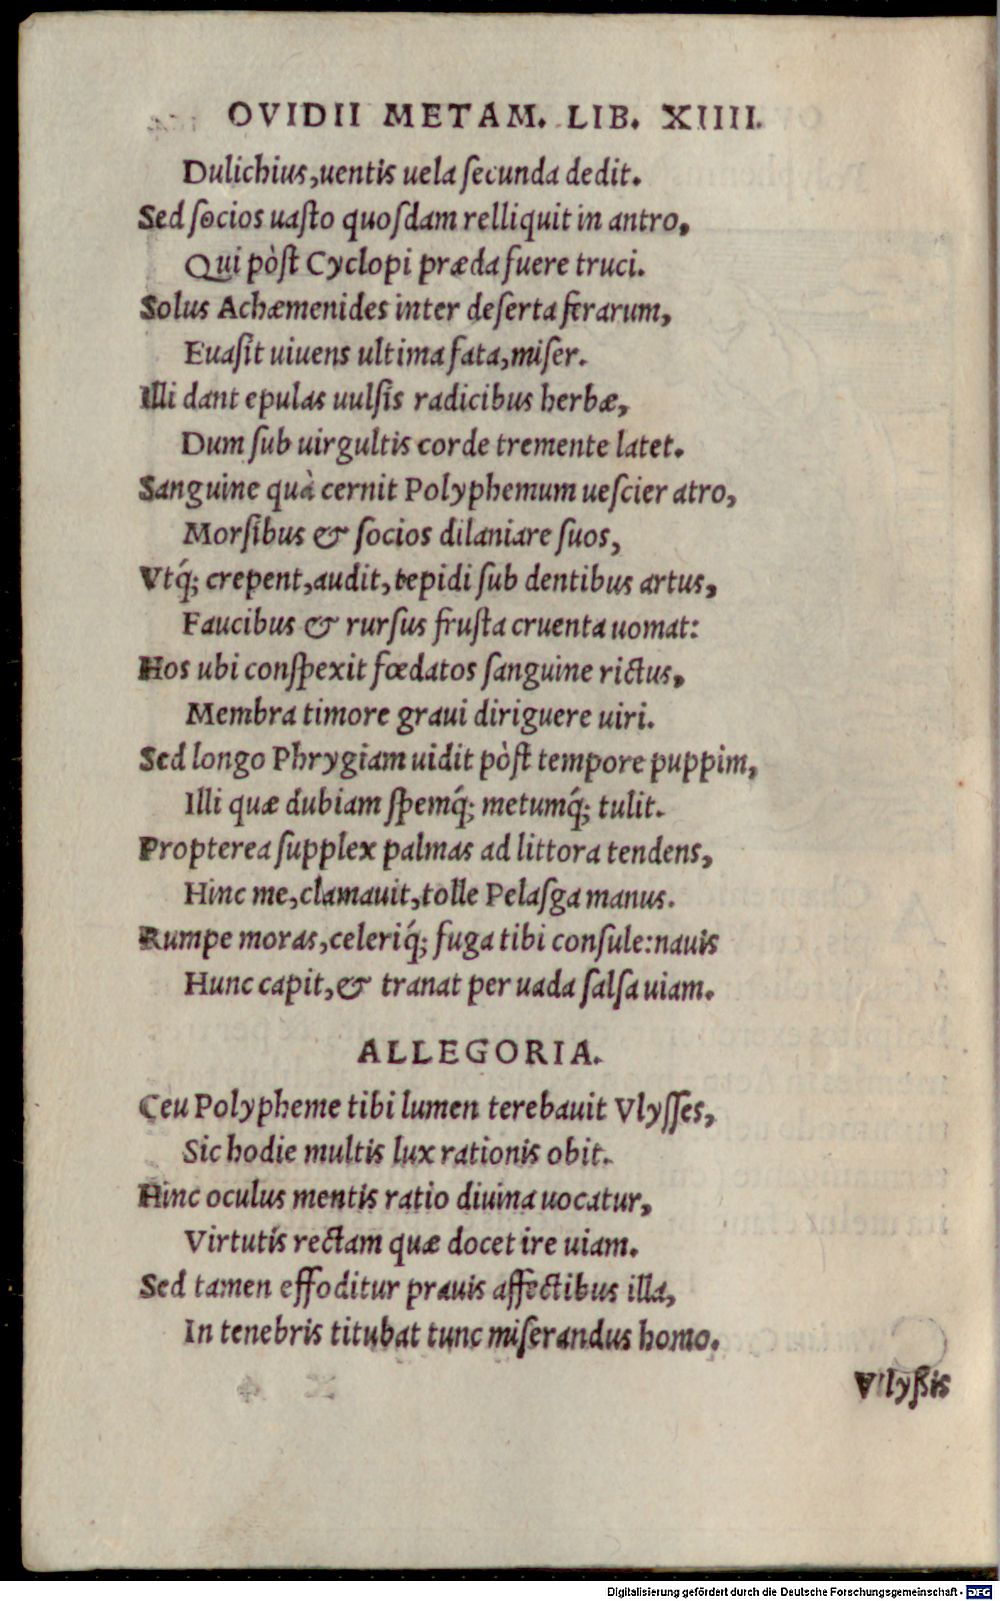 OVIDII METAM. LIB. XIIII.
Dulichius, uentis uela secunda dedit.
Sed socios uasto quosdam relliquit in antro,
Qui pòst Cyclopi præda fuere truci.
Solus Achæmenides inter deserta ferarum,
Euasit uiuens ultima fata, miser.
Illi dant epulas uulsis radicibus herbæ,
Dum sub uirgultis corde tremente latet.
Sanguine quà cernit Polyphemum uescier atro,
Morsibus & socios dilaniare suos,
Vtq́; crepent, audit, tepidi sub dentibus artus,
Faucibus & rursus frusta cruenta uomat:
Hos ubi conspexit fœdatos sanguine rictus,
Membra timore graui diriguere uiri.
Sed longo Phrygiam uidit pòst tempore puppim,
Illi quæ dubiam spemq́; metumq́; tulit.
Propterea supplex palmas ad littora tendens,
Hinc me, clamauit, tolle Pelasga manus.
Rumpe moras, celeriq́; fuga tibi consule: nauis
Hunc capit, & tranat per uada salsa uiam.
ALLEGORIA.
Ceu Polypheme tibi lumen terebauit Vlysses,
Sic hodie multis lux rationis obit.
Hinc oculus mentis ratio diuina uocatur,
Virtutis rectam quæ docet ire uiam.
Sed tamen effoditur prauis affectibus illa,
In tenebris titubat tunc miserandus homo.
Vlyßis
Digitalisierung gefördert durch die Deutsche Forschungsgemeinschaft - DFG